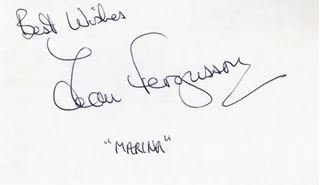 Best Wishes
Jean Fergusson
"MARINA"